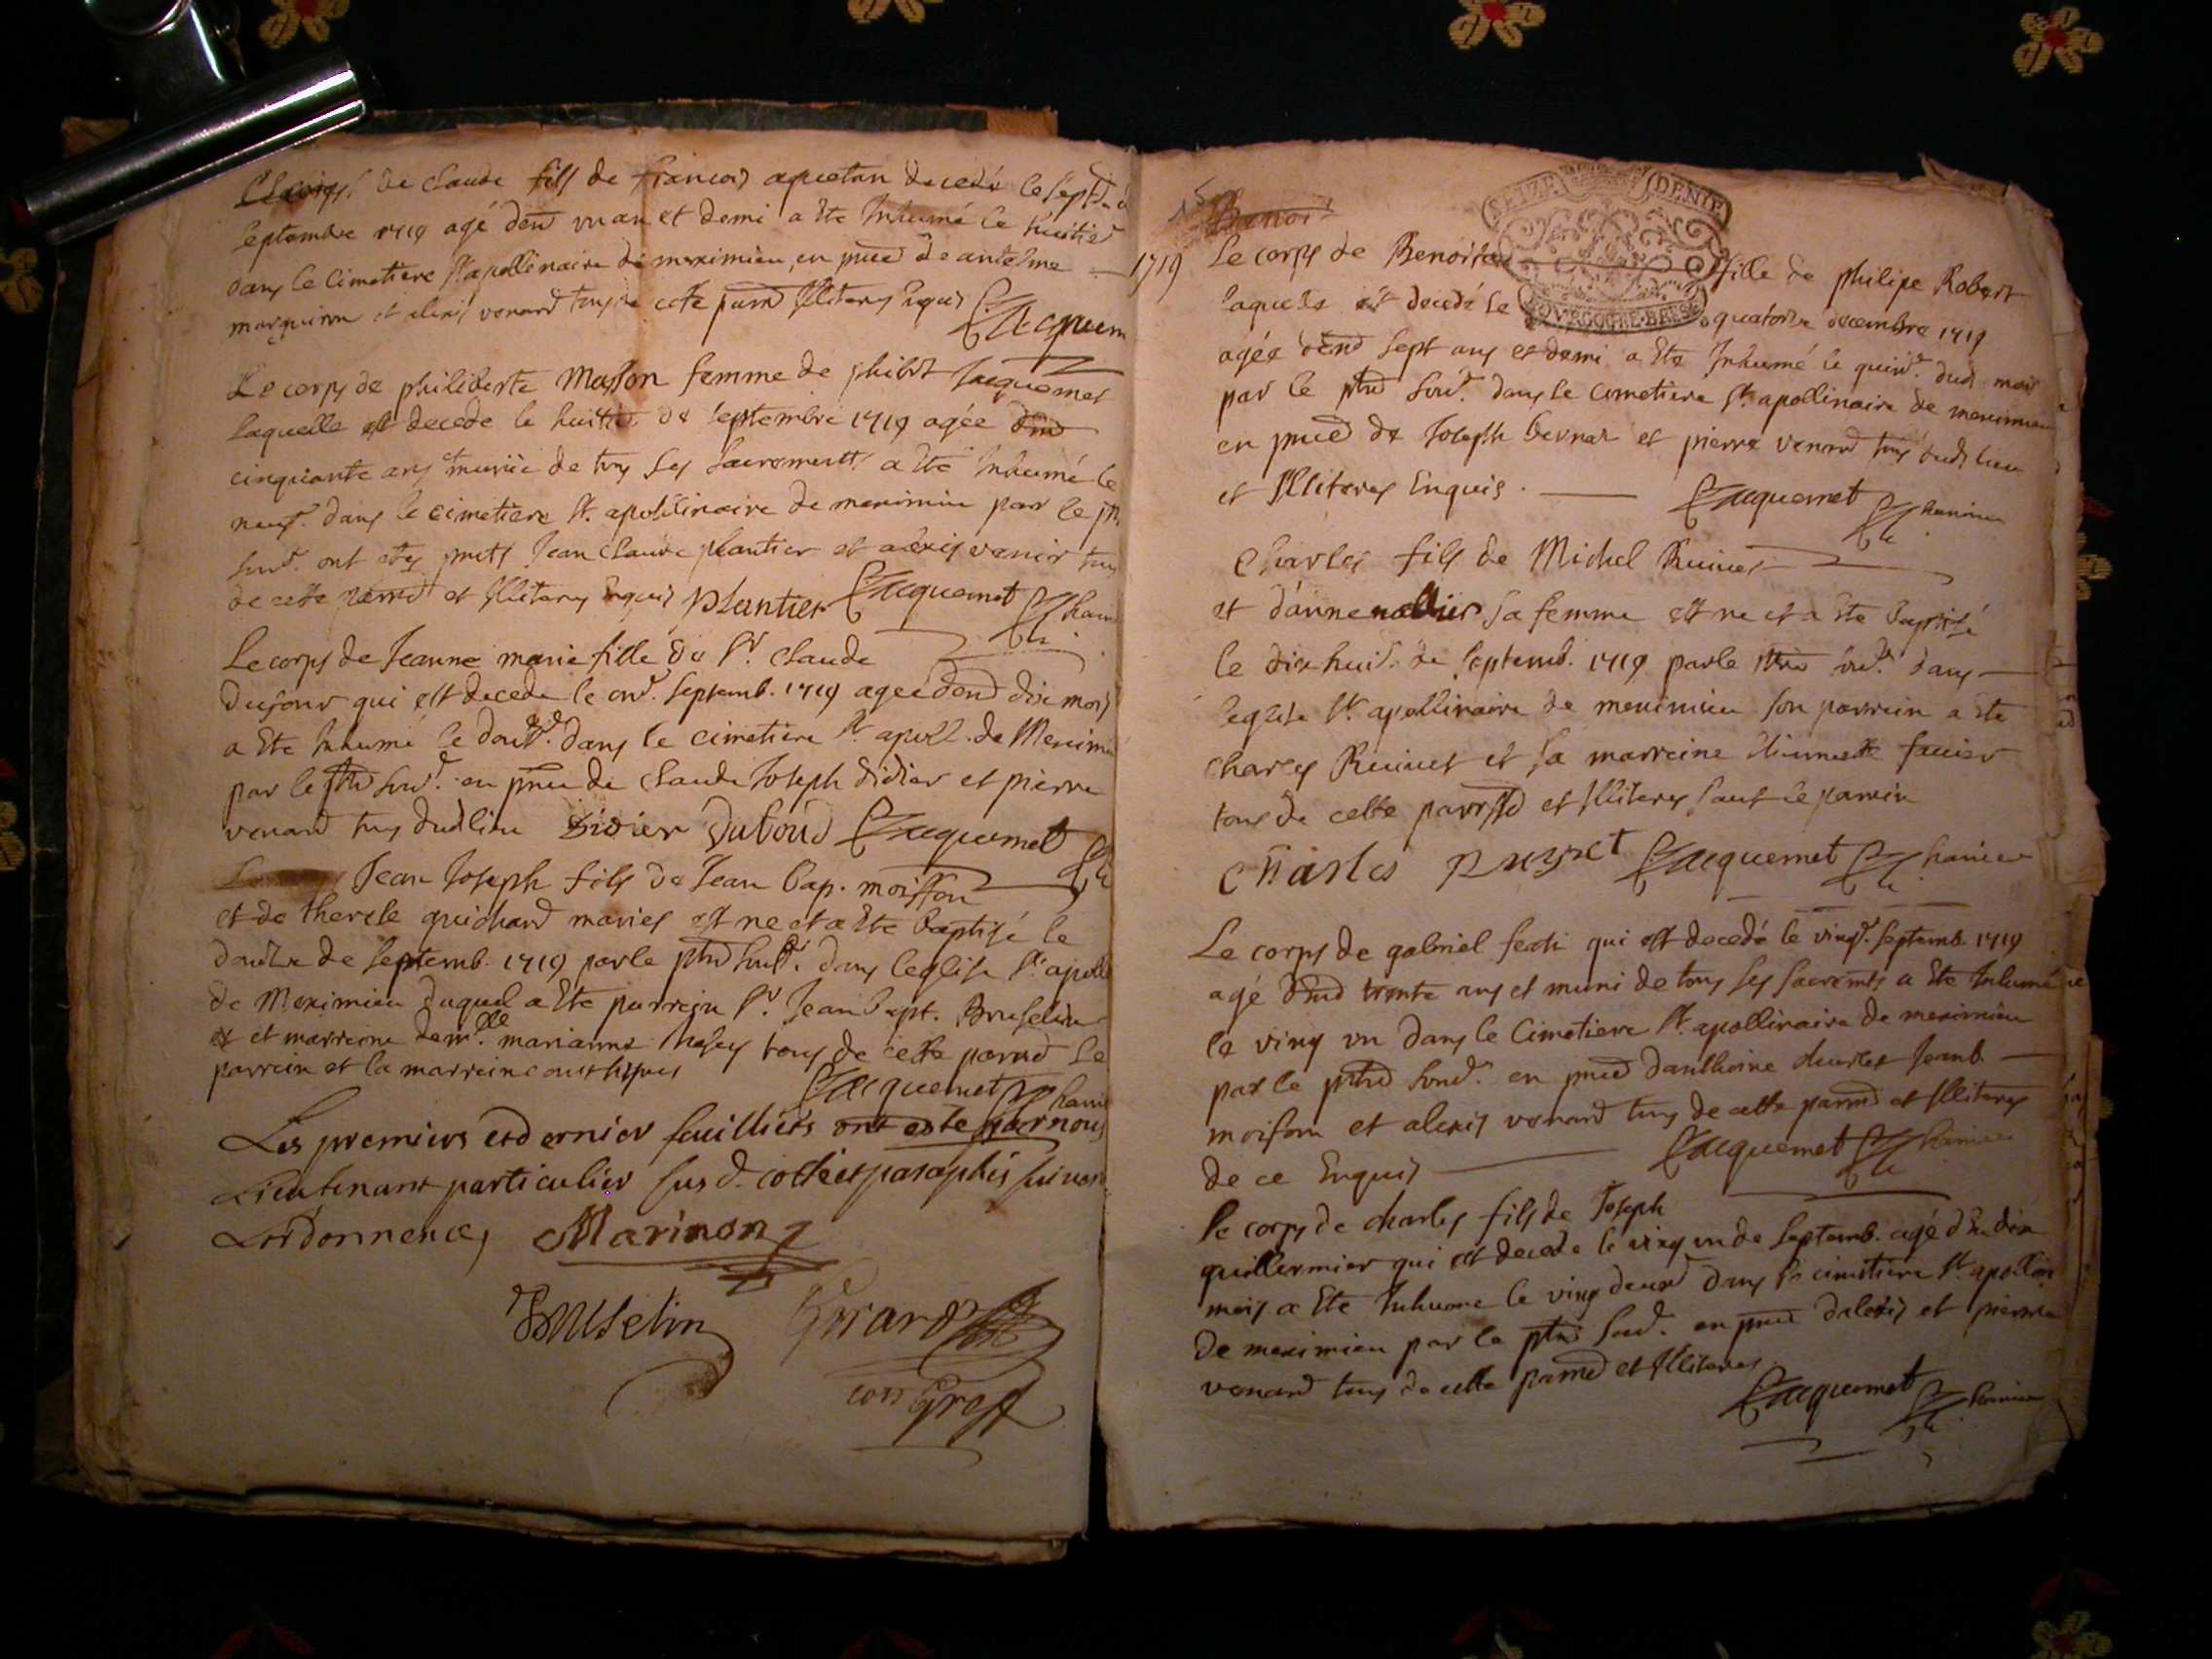 Le corps de Claude fils de francois aquetan decedé le sept d
septembre 1719 agé denv un an et demi a Ete Inhumé le huitie
dans le Cimetiere St apollinaire de meximieu, en pnce de antelme
marguiron et alexis venard tous de cette parrse Illiteres Enquis Jacquem
Le corps de philiberte Masson femme de philibt Jacquemet
laquelle est decede le huitie de septembre 1719 agée denv
cinquante ans et munie de tous ses sacrements a Ete Inhumé le
neuf. dans le cimetiere St. apollinaire de meximieu par le pt
sousd. ont etes pnts Jean Claude plantier et alexis venard tous
de cette parrse et Illiteres Enquis plantier Jacquemet
Le corps de Jeanne marie fille du Sr. Claude
qui est decede le onz. septemb. 1719 agée denv dix mois
a Ete Inhumé le douz. dans le cimetiere St apoll. de Meximi
par le ptre sousd. en pnce de Claude Joseph didier et pierre
venard tous dudt lieu Didier Dubous Jacquemet
Jean Joseph fils de Jean bap. moisson
et de therese guichard maries est ne et a Ete baptisé le
douze de septemb. 1719 par le ptre sousd. dans leglise St apoll
de Meximieu duquel a Ete parrein Sr. Jean bapt. Bruselin
et marreine demlle. marianne tous de cette parrse le
parrein et la marreine ont signes
Jacquemet
Les premiers et dernier feuilliets ont esté par nous
Lieutenant particulier susd. cottés et paraphés suivant
Lordonnence, Marinon
Bruselin Girard
con Greff
15
Benoi
1719 Le corps de Benoite fille de philipe Robert
SEIZE DENIE
BOURGOGNE BRESSE
laquelle est decedé le quatorze decembre 1719
agée denv sept ans et demi a Ete Inhumé le quinz. dud. mois
par le ptre sousd. dans le Cimetiere St. apollinaire de meximieu
en pnce de Joseph bernar et pierre venard tous dudt lieu
et Illiteres Enquis. Jacquemet
Charles fils de Michel Ruinet
et d'anne sa femme est ne et a Ete baptisé
le dix huit. de septemb. 1719 par le ptre sousd. dans
leglise St. apollinaire de meximieu son parrein a Ete
charles Ruinet et sa marreine favier
tous de cette parrsse et Illiteres sauf le parrein
Charles Jacquemet
Le corps de gabriel qui est decedé le vingt. septemb. 1719
agé denv trente ans et muni de tous ses sacremts a Ete Inhumé
le ving un dans le Cimetiere St apollinaire de meximieu
par le ptre sousd. en pnce danthoine Jeanb.
moison et alexis venard tous de cette parrse et Illiteres
de ce Enquis Jacquemet
Le corps de charles fils de Joseph
guillermier qui est decede le ving un de septemb. agé d'un dix
mois a Ete Inhume le ving deux dans le cimetiere St apollin
de meximieu par le ptre sousd. en pnce dalexis et pierre
venard tous de cette parrse et Illiteres Jacquemet